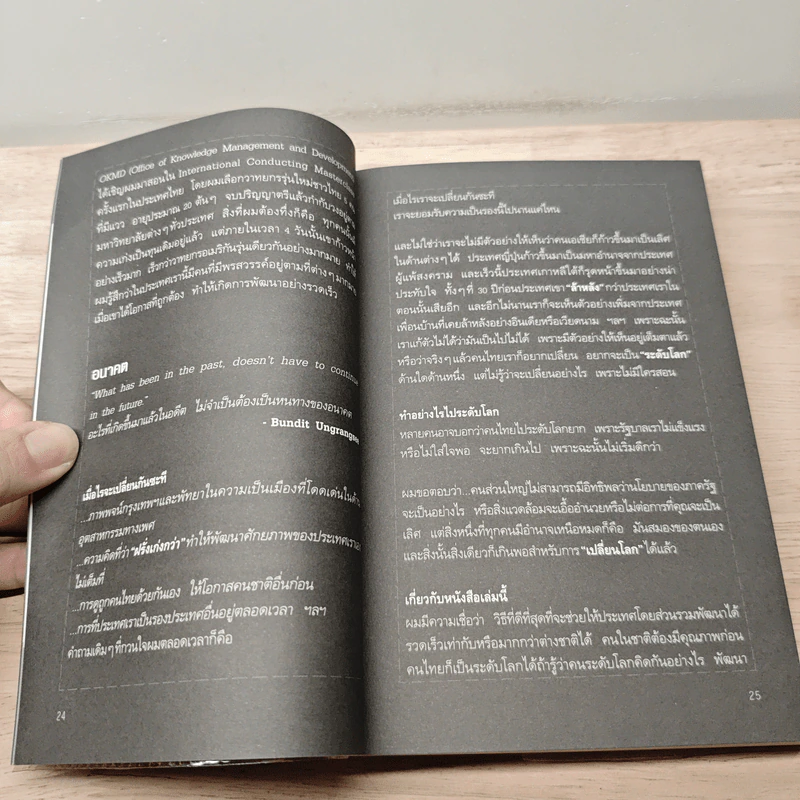 OKMD (Office of Knowledge Management and Development)
ได้เชิญผมมาสอนใน International Conducting Masterclass
ครั้งแรกในประเทศไทย โดยผมเลือกวาทยกรรุ่นใหม่ชาวไทย 5 คน
ที่มีแวว อายุประมาณ 20 ต้นๆ จบปริญญาตรีแล้วกำกับวงอยู่ตาม
มหาวิทยาลัยต่างๆ ทั่วประเทศ สิ่งที่ผมต้องทึ่งก็คือ ทุกคนนั้นมี
ความเก่งเป็นทุนเดิมอยู่แล้ว แต่ภายในเวลา 4 วันนั้นเขาก้าวหน้า
อย่างเร็วมาก เร็วกว่าวาทยกรอเมริกันรุ่นเดียวกันอย่างมากมาย ทำให้
ผมรู้สึกว่าในประเทศเรานี้มีคนที่มีพรสวรรค์อยู่ตามที่ต่างๆ มากมาย
เมื่อเขาได้โอกาสที่ถูกต้อง ทำให้เกิดการพัฒนาอย่างรวดเร็ว
อนาคต
"What has been in the past, doesn't have to continue
in the future."
อะไรที่เกิดขึ้นมาแล้วในอดีต ไม่จำเป็นต้องเป็นหนทางของอนาคต
- Bundit Ungrangsee
เมื่อไรจะเปลี่ยนกันซะที
...ภาพพจน์กรุงเทพฯและพัทยาในความเป็นเมืองที่โดดเด่นในด้าน
อุตสาหกรรมทางเพศ
...ความคิดที่ว่า "ฝรั่งเก่งกว่า" ทำให้พัฒนาศักยภาพของประเทศเราเอง
ไม่เต็มที่
...การดูถูกคนไทยด้วยกันเอง ให้โอกาสคนชาติอื่นก่อน
...การที่ประเทศเราเป็นรองประเทศอื่นอยู่ตลอดเวลา ฯลฯ
คำถามเดิมๆ ที่กวนใจผมตลอดเวลาก็คือ
24
เมื่อไรเราจะเปลี่ยนกันซะที
เราจะยอมรับความเป็นรองนี้ไปนานแค่ไหน
และไม่ใช่ว่าเราจะไม่มีตัวอย่างให้เห็นว่าคนเอเชียก็ก้าวขึ้นมาเป็นเลิศ
ในด้านต่างๆ ได้ ประเทศญี่ปุ่นก้าวขึ้นมาเป็นมหาอำนาจจากประเทศ
ผู้แพ้สงคราม และเร็วนี้ประเทศเกาหลีใต้ก็รุดหน้าขึ้นมาอย่างน่า
ประทับใจ ทั้งๆ ที่ 30 ปีก่อนประเทศเขา "ล้าหลัง" กว่าประเทศเราใน
ตอนนั้นเสียอีก และอีกไม่นานเราก็จะเห็นตัวอย่างเพิ่มจากประเทศ
เพื่อนบ้านที่เคยล้าหลังอย่างอินเดียหรือเวียดนาม ฯลฯ เพราะฉะนั้น
เราแก้ตัวไม่ได้ว่ามันเป็นไปไม่ได้ เพราะตัวอย่างให้เห็นอยู่เต็มตาแล้ว
หรือว่าจริงๆ แล้วคนไทยเราก็อยากเปลี่ยน อยากจะเป็น "ระดับโลก"
ด้านใดด้านหนึ่ง แต่ไม่รู้ว่าจะเปลี่ยนอย่างไร เพราะไม่มีใครสอน
ทำอย่างไรไประดับโลก
หลายคนอาจบอกว่าคนไทยไประดับโลกยาก เพราะรัฐบาลเราไม่แข็งแรง
หรือไม่ใส่ใจพอ จะยากเกินไป เพราะฉะนั้นไม่เริ่มดีกว่า
ผมขอตอบว่า...คนส่วนใหญ่ไม่สามารถมีอิทธิพลว่านโยบายของภาครัฐ
จะเป็นอย่างไร หรือสิ่งแวดล้อมจะเอื้ออำนวยหรือไม่ต่อการที่คุณจะเป็น
เลิศ แต่สิ่งหนึ่งที่ทุกคนมีอำนาจเหนือหมดก็คือ มันสมองของตนเอง
และสิ่งนั้นสิ่งเดียวก็เกินพอสำหรับการ "เปลี่ยนโลก" ได้แล้ว
เกี่ยวกับหนังสือเล่มนี้
ผมมีความเชื่อว่า วิธีที่ดีที่สุดที่จะช่วยให้ประเทศโดยส่วนรวมพัฒนาได้
รวดเร็วเท่ากับหรือมากกว่าต่างชาติได้ คนในชาติต้องมีคุณภาพก่อน
คนไทยก็เป็นระดับโลกได้ถ้ารู้ว่าคนระดับโลกคิดกันอย่างไร พัฒนา
25